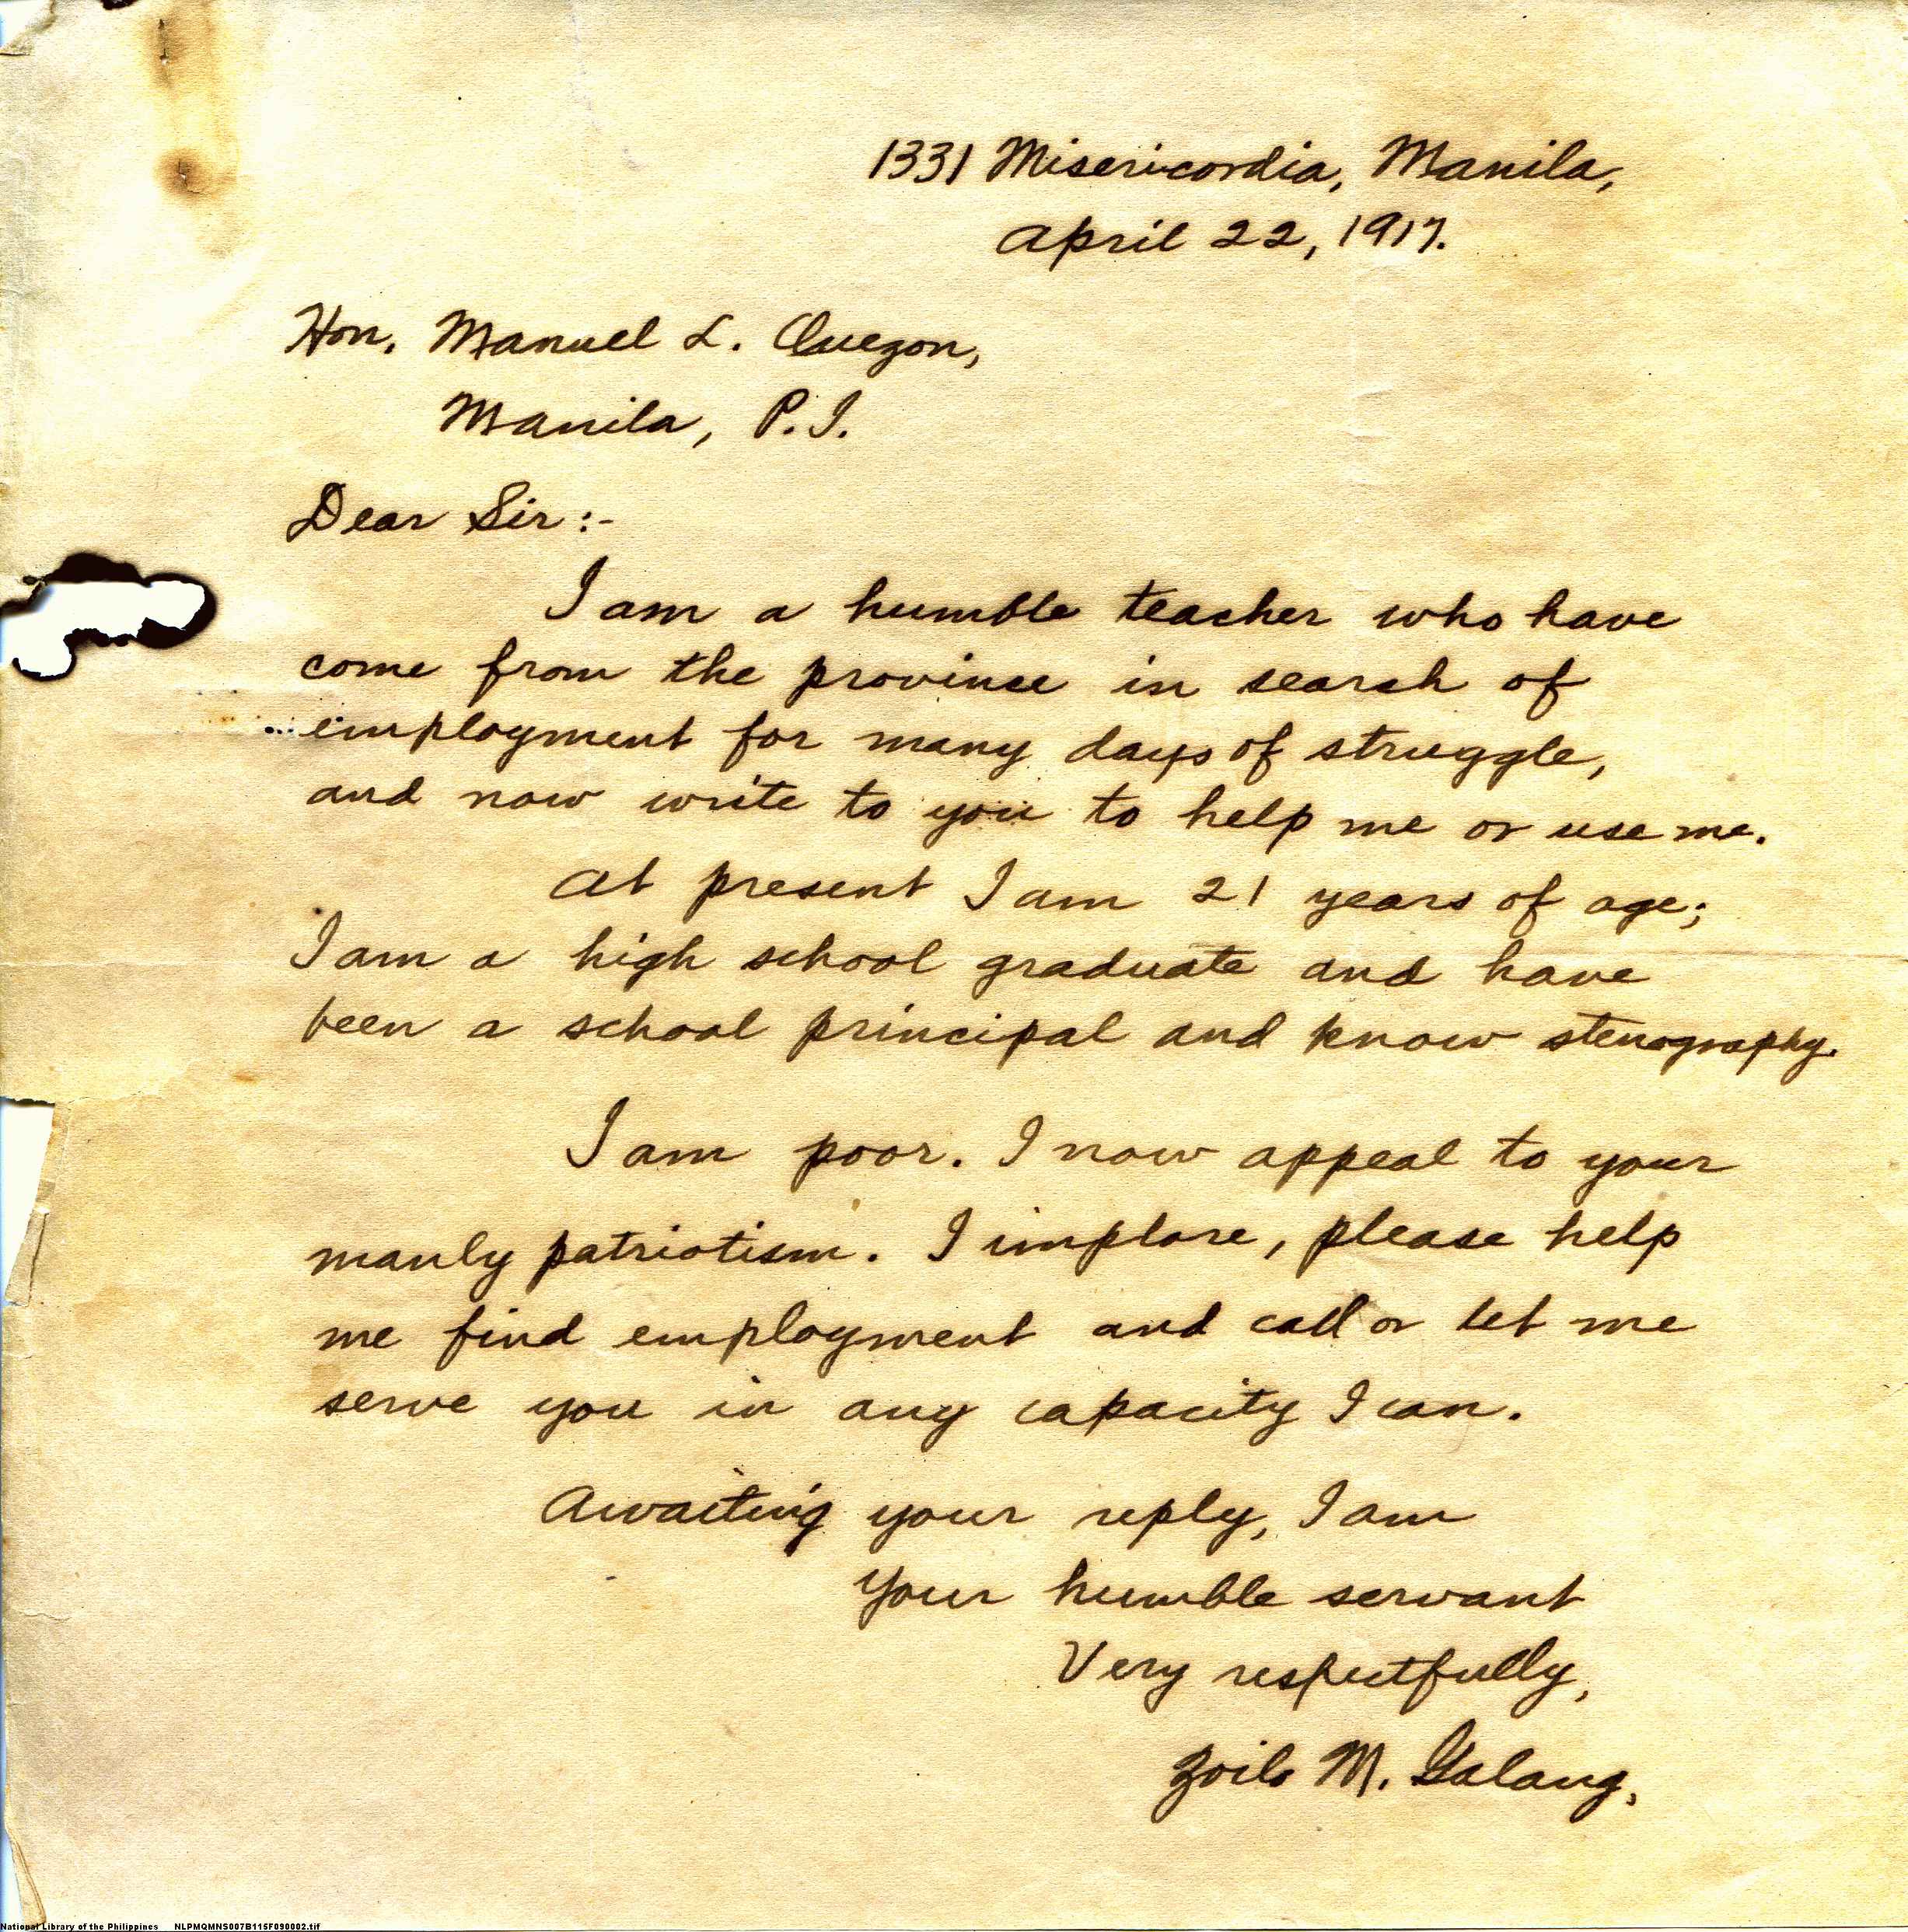 1331 Misericordia, Manila,
April 22, 1917.
Hon. Manuel L. Quezon,
Manila, P.I.
Dear Sir:-
I am a humble teacher who have
come from the province in search of
employment for many days of struggle,
and now write to you to help me or use me.
At present I am 21 years of age;
I am a high school graduate and have
been a school principal and know stenography.
I am poor. I now appeal to your
manly patriotism. I implore, please help
me find employment and call or let me
serve you in any capacity I can.
Awaiting your reply, I am
your humble servant
Very respectfully,
Zoilo M. Galang.
National Library of the Philippines NLPMQMNS007B115F090002.tif